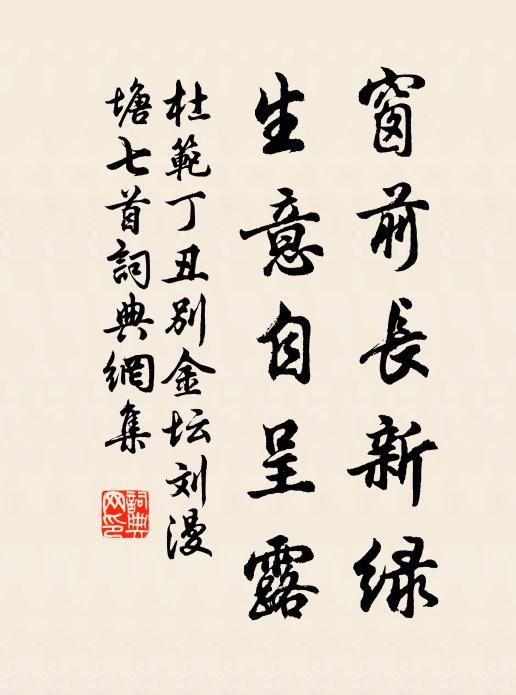 窗前長新緑
生意自呈露
杜範丁丑别金坛刘漫
塘七首詞典網集
詞典网印